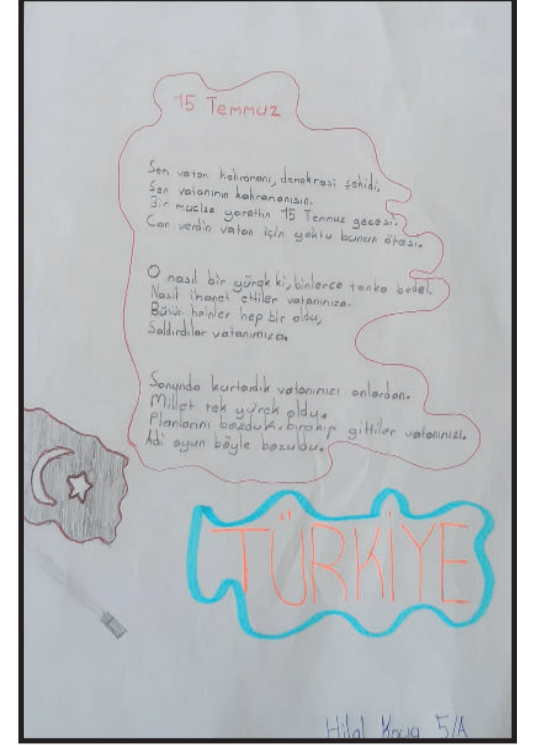 15 Temmuz
Sen vatan kahramanı, demokrasi şehidi,
Sen vatanının kahramanısın,
Bir mucize yarattın 15 Temmuz gecesi.
Can verdin vatan için yoktu bunun ötesi.
O nasıl bir yürek ki, binlerce tanka bedel.
Nasıl ihanet ettiler vatanımıza.
Bütün hainler hep bir oldu,
Saldırdılar vatanımıza.
Sonunda kurtardık vatanımızı onlardan.
Millet tek yürek oldu.
Planlarını bozduk. bırakıp gittiler vatanımızı.
Adi oyun böyle bozuldu.
TÜRKİYE
Hilal 5/A